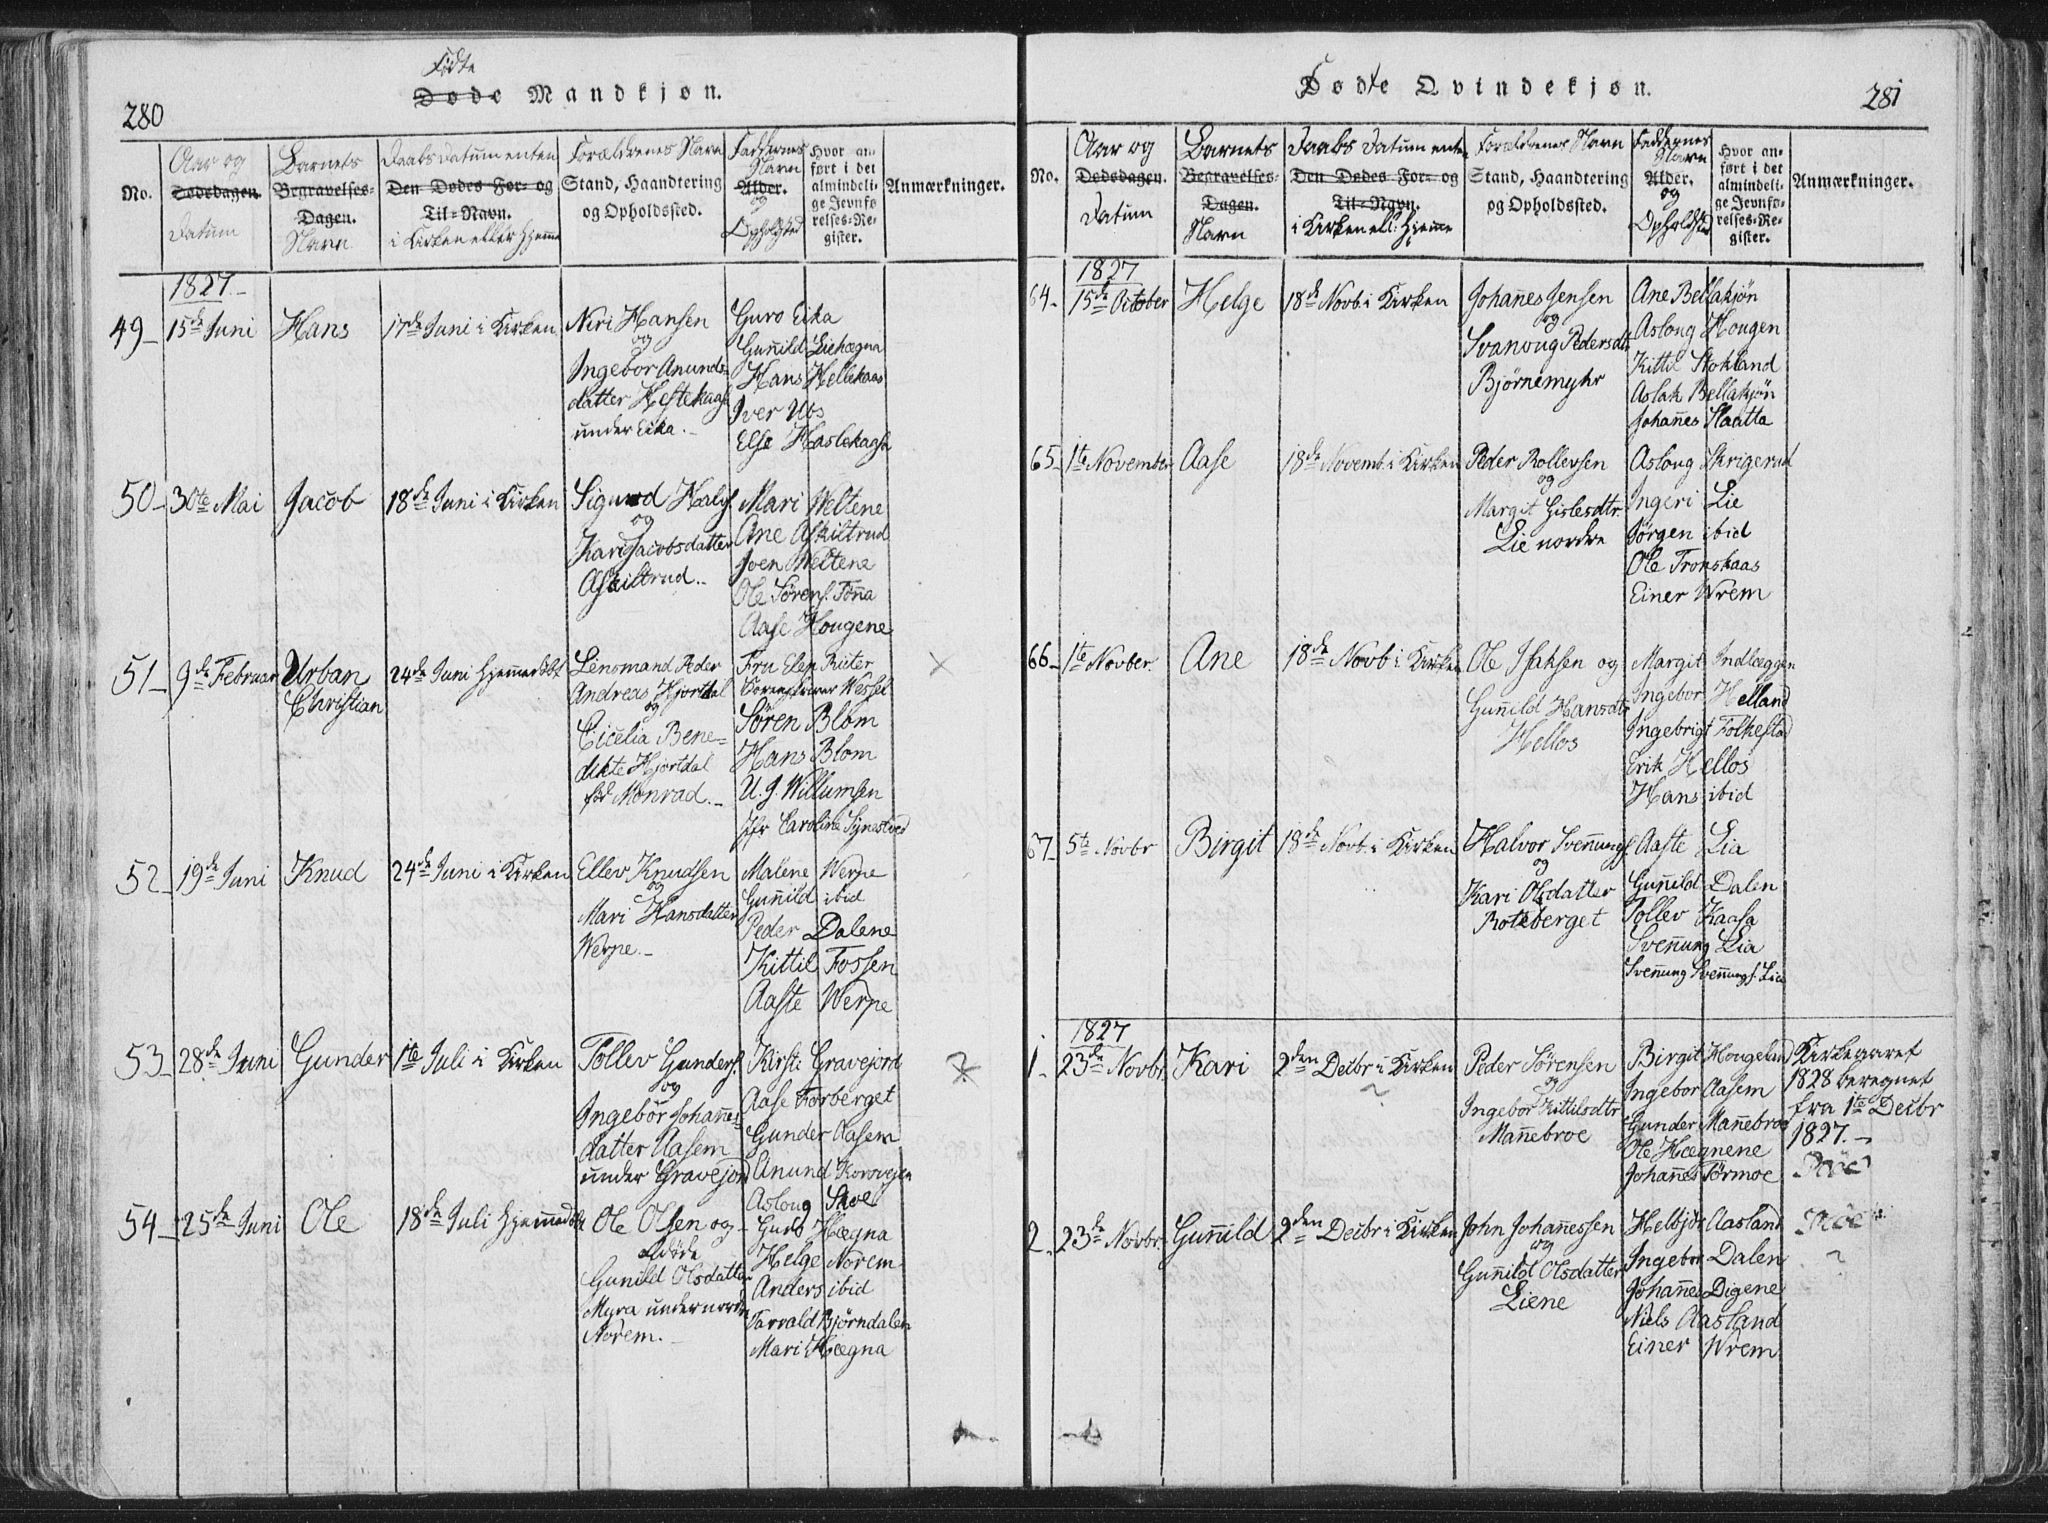 280
Fødte
Døde Mandkjøn.
No.
Aar og
Dødsdagen.
Datum
Barnets
Begravelses-
Dagen.
Navn
Daabsdatum enten
Den Dødes For- og
Til-Navn.
i Kirken eller Hjemme
Forældrenes Navn
Stand, Haandtering
og Opholdssted.
Faddernes
Navn
Alder.
og
Opholdsted
Hvor an-
ført i det
almindeli-
ge Jevnfø-
relses-Re-
gister.
Anmærkninger.
1827.
49 15de Juni Hans 17de Juni i Kirken
Niri Hansen
og
Ingebor Anunds-
datter Hestekaas
under Eika.
Guro Eika
Guñild Liehægna
Hans Hellekaas
Iver Ubs
Else Haslekaasa
50 30te Mai Jacob 18de Juni i Kirken
Sigurd Halvs.
og
Kari Jacobsdatter
Askiltrud.
Mari Weltene
Ane Askiltrud
Joen Weltene
Ole Sørens. Tøña
Aase Hougene
51 9de Februar Urban
Christian
24de Juni Hjemedøbt
Lensmand Peder
Andreas Hjortdal
og
Cicelia Bene-
dikte Hjortdal
fød Monrad.
Fru Elen Ruter
Sorenskriver Wessel
Søren Blom
Hans Blom
U. J. Willumsen
Jfr Caroline Synestved
52 19de Juni Knud 24de Juni i Kirken
Ellev Knudsen
og
Mari Hansdatter
Werpe.
Malene Werpe
Guñild ibid
Peder Dalene
Kittil Fossen
Aaste Werpe
53 28de Juni Gunder 1te Juli i Kirken
Tollev Gunders.
og
Ingebor Johañes-
datter Aasem
under Gravejord
Kirsti Gravejord
Aase Forberget
Gunder Aasem
Anund Korovejen
Aslong Stoe
54 25de Juni Ole 18de Juli Hjemedøbt
Ole Olsen og
døde
Gunild Olsdatter
Myra under nordre
Norem.
Guro Hægna
Helge Norem
Anders ibid
Tarvald Bjørndalen
Mari Hægna
281
Fødte Qvindekjøn.
No.
Aar og
Dødsdagen.
Datum
Barnets
Begravelses-
Dagen.
Navn
Daabs Datum enten
Den Dødes For- og
Til-Navn.
i Kirken ell: Hjemme
Forældrenes Navn
Stand, Haandtering
og Opholdssted.
Faddernes
Navn
Alder.
og
Opholdsted
Hvor an-
ført i det
almindeli-
ge Jevnfø-
relses-Re-
gister.
Anmærkninger.
1827
64 15de October Helge 18de Novb. i Kirken
Johañes Jensen
og
Svanoug Pedersdtr
Bjørnemyhr
Ane Bellakjøn
Aslong Hougen
Kittil Stokland
Aslak Bellakjøn
Johañes Slaatta
65 1te November Aase 18de Novemb. i Kirken
Peder Rollevsen
og
Margit Gislesdtr.
Lie nordre
Aslong Skrigerud
Ingeri Lie
Jørgen ibid
Ole Tronskaas
Einer Wrem
66 1te Novber. Ane 18de Novb i Kirken
Ole Isaksen og
Guñild Hansdtr
Hellos
Margit Indlæggen
Ingebor Helland
Ingebrigt Folkestad
Erik Hellos
Hans ibid
67 5te Novbr Birgit 18de Novb. i Kirken
Halvor Svennungs.
og
Kari Olsdatter
Roteberget
Aaste Lia
Guñild Dalen
Tollev Kaasa
Sveñung Lia
Sveñung Sveñungs. Lia
1827
1 23de Novbr. Kari 2den Decbr i Kirken
Peder Sørensen
og
Ingebor Kittilsdtr
Mañebroe
Birgit Hougeland
Ingebor Aasem
Gunder Mañebroe
Ole Hægnene
Johañes Tørmoe
Kirkeaaret
1828 beregnet
fra 1te Decbr
1827.
2 23de Novbr. Guñild 2den Decbr i Kirken
John Johañessen
og
Guñild Olsdatter
Liene
Helbjør Aasland
Ingebor Dalen
Johañes Digene
Niels Aasland
Einer Wrem